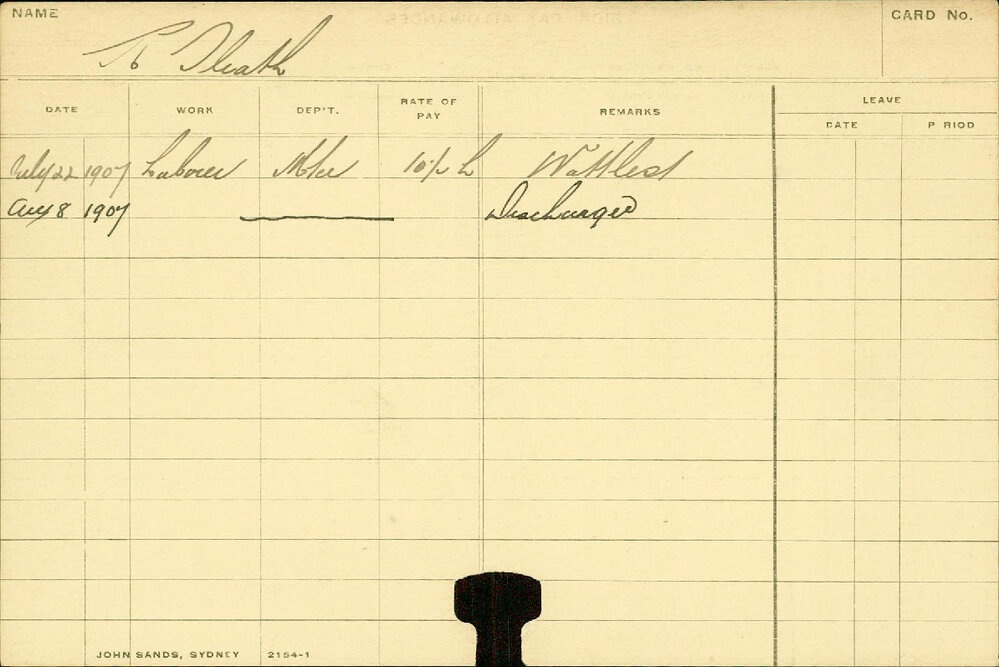 NAME
CARD No.
DATE WORK DEP'T. RATE OF PAY REMARKS LEAVE
DATE P RIOD
July 22 1907 Laborer Wattle St
Aug 8 1907 Discharged
JOHN SANDS, SYDNEY 2154-1